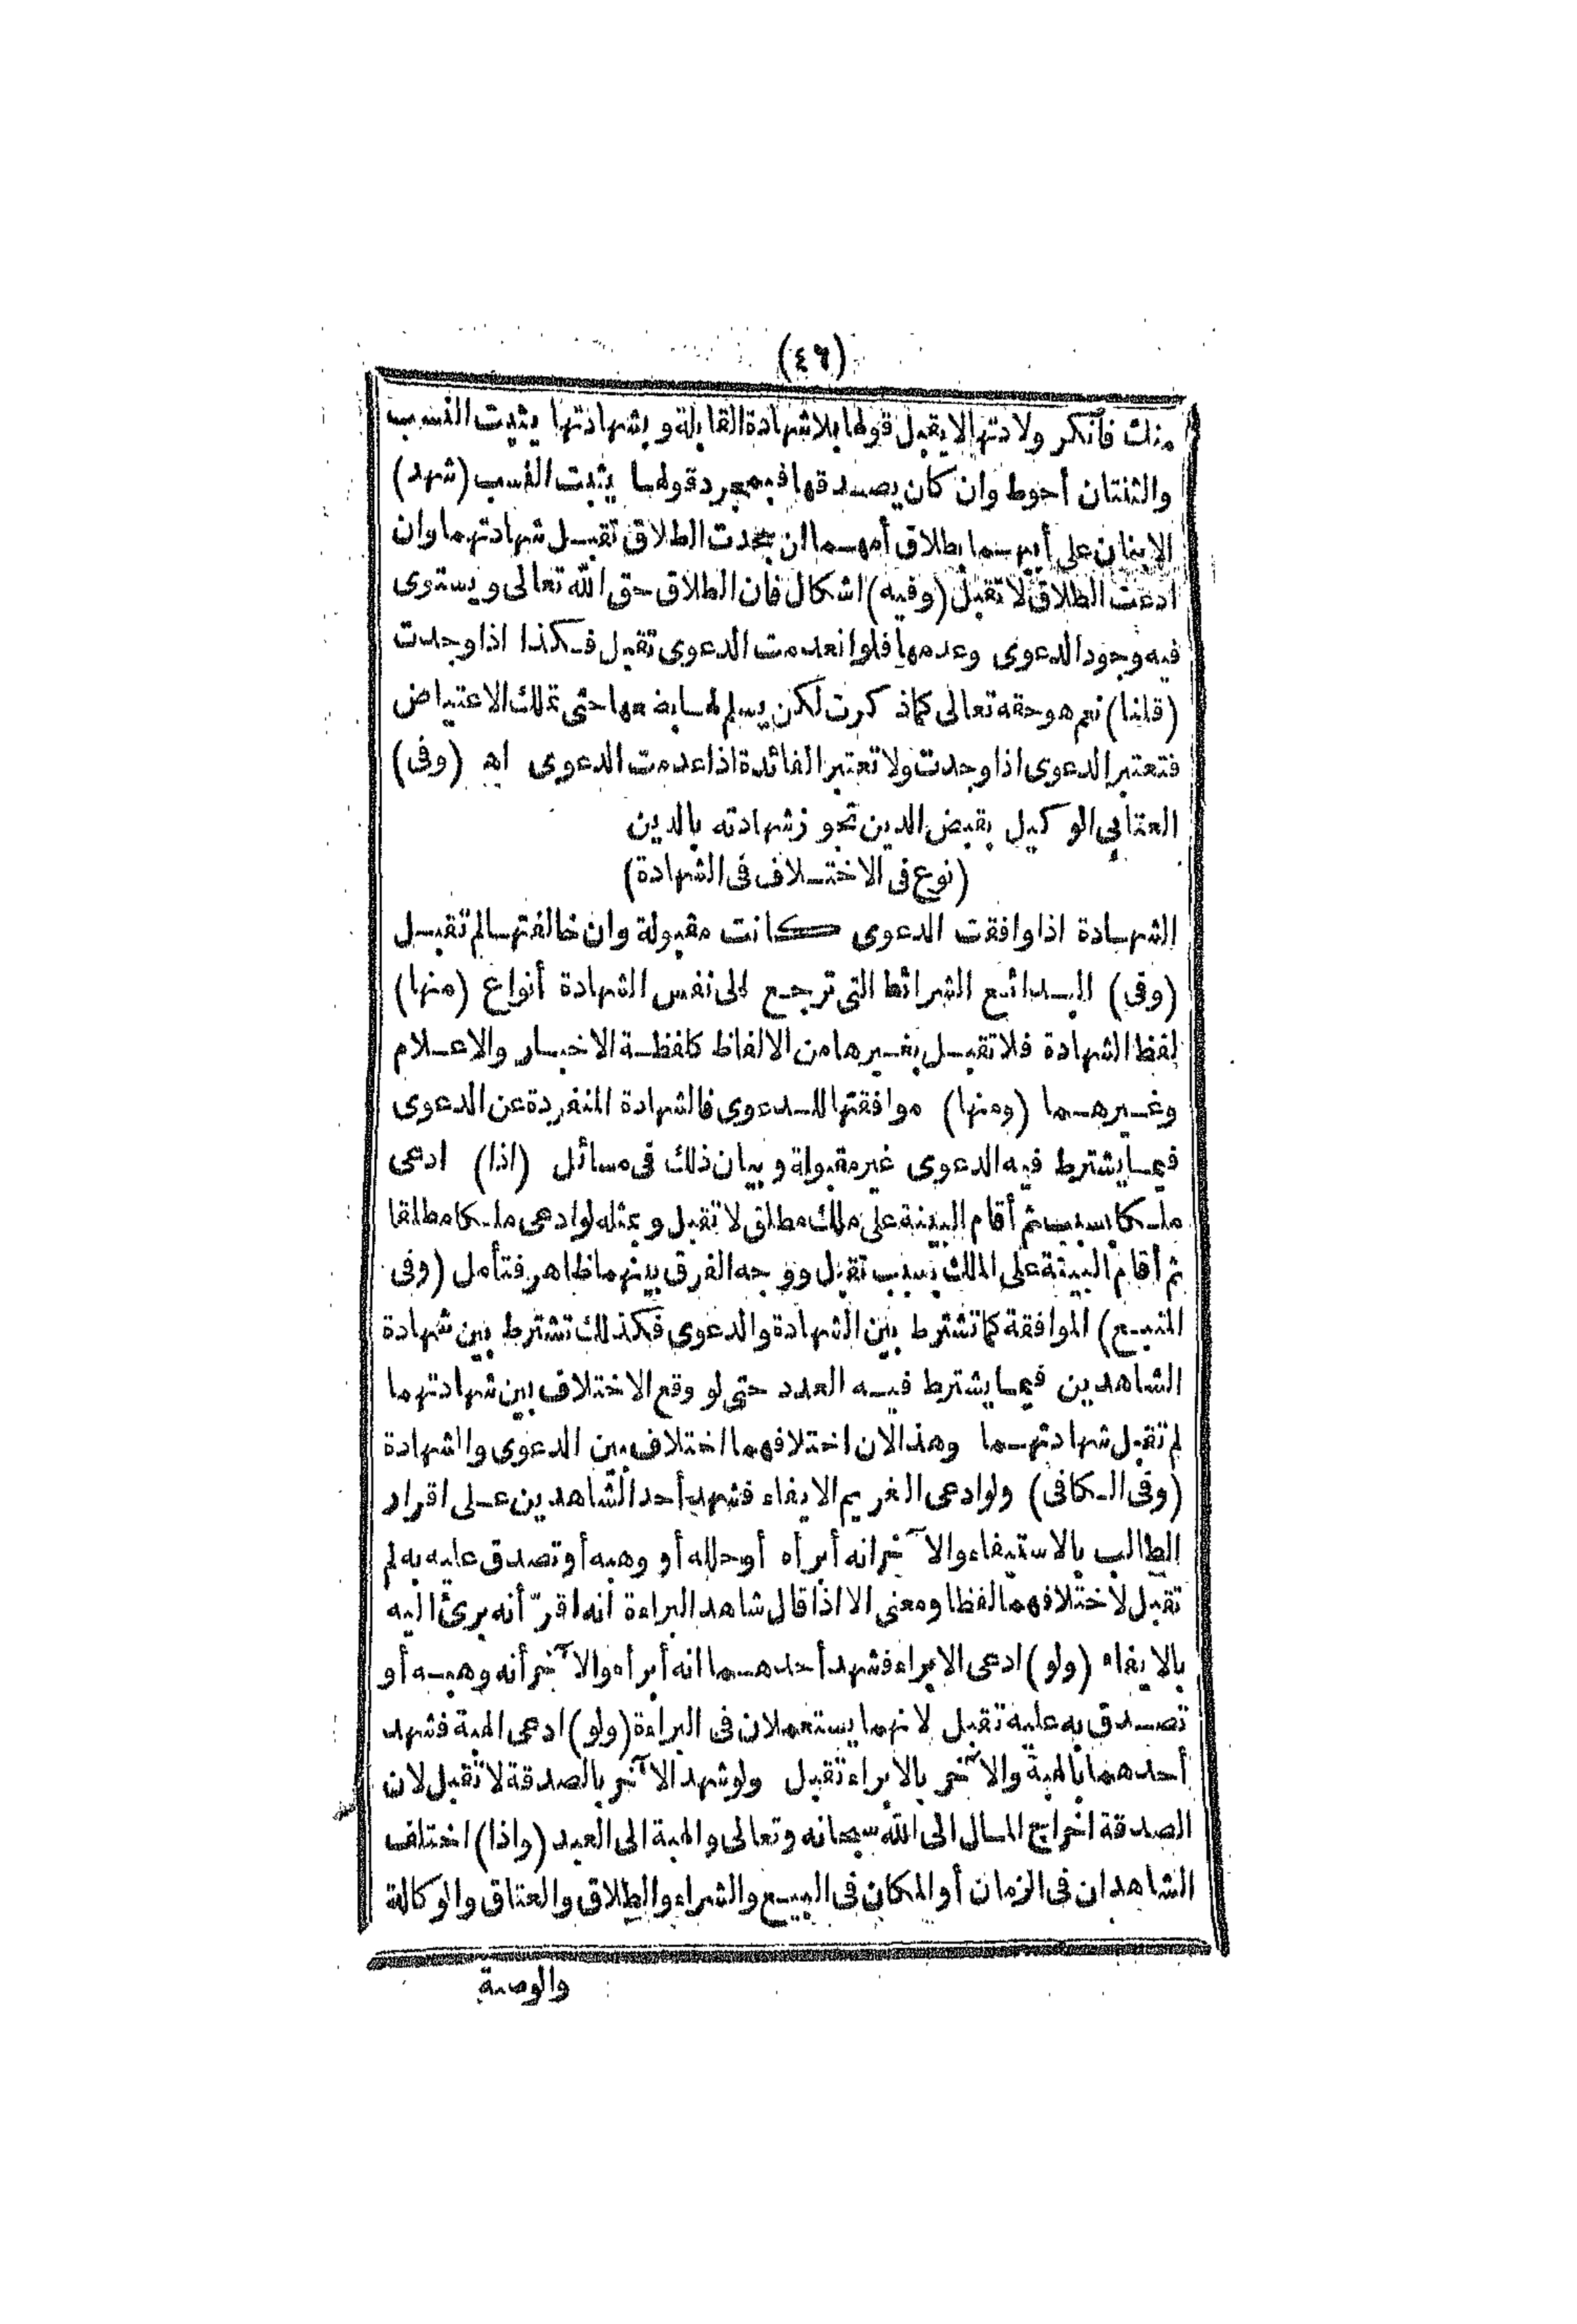 (٤٦)
منك فأنكر ولادتها لا يقبل قولها بلا شهادة القابلة وبشهادتها يثبت النسب
والثنتان أحوط وان كان يصدقها فبمجرد قولها يثبت النسب (شهد)
الابنان على أبيهما بطلاق أمهما ان جحدت الطلاق تقبل شهادتهما وان
ادعت الطلاق لا تقبل (وفيه) اشكال فان الطلاق حق الله تعالى ويستوى
فيه وجود الدعوى وعدمها فلو انعدمت الدعوى تقبل فكذا اذا وجدت
(قلنا) نعم هو حقه تعالى كما ذكرت لكن يسلم لها بضعها حتى تملك الاعتياض
فتعتبر الدعوى اذا وجدت ولا تعتبر الفائدة اذا عدمت الدعوى اه (وفى)
العتابي الوكيل بقبض الدين تجوز شهادته بالدين
(نوع فى الاختلاف فى الشهادة)
الشهادة اذا وافقت الدعوى كانت مقبولة وان خالفتها لم تقبل
(وفى) البدائع الشرائط التى ترجع الى نفس الشهادة أنواع (منها)
لفظ الشهادة فلا تقبل بغيرها من الالفاظ كلفظة الاخبار والاعلام
وغيرهما (ومنها) موافقتها للدعوى فالشهادة المنفردة عن الدعوى
فيما يشترط فيه الدعوى غير مقبولة وبيان ذلك فى مسائل (اذا) ادعى
ملكا بسبب ثم أقام البينة على ملك مطلق لا تقبل وبمثله لو ادعى ملكا مطلقا
ثم أقام البينة على الملك بسبب تقبل ووجه الفرق بينهما ظاهر فتأمل (وفى
المنبع) الموافقة كما تشترط بين الشهادة والدعوى فكذلك تشترط بين شهادة
الشاهدين فيما يشترط فيه العدد حتى لو وقع الاختلاف بين شهادتهما
لم تقبل شهادتهما وهذا لان اختلافهما اختلاف بين الدعوى والشهادة
(وفى الكافى) ولو ادعى الغريم الايفاء فشهد أحد الشاهدين على اقرار
الطالب بالاستيفاء والآخر انه أبرأه أو حلله أو وهبه أو تصدق عليه به لم
تقبل لاختلافهما لفظا ومعنى الا اذا قال شاهد البراءة انه اقرّ أنه برئ اليه
بالايفاء (ولو) ادعى الابراء فشهد أحدهما انه أبرأه والآخر أنه وهبه أو
تصدق به عليه تقبل لانهما يستعملان فى البراءة (ولو) ادعى الهبة فشهد
أحدهما بالهبة والآخر بالابراء تقبل ولو شهد الآخر بالصدقة لا تقبل لان
الصدقة اخراج المال الى الله سبحانه وتعالى والهبة الى العبد (واذا) اختلف
الشاهدان فى الزمان أو المكان فى البيع والشراء والطلاق والعتاق والوكالة
والوصية